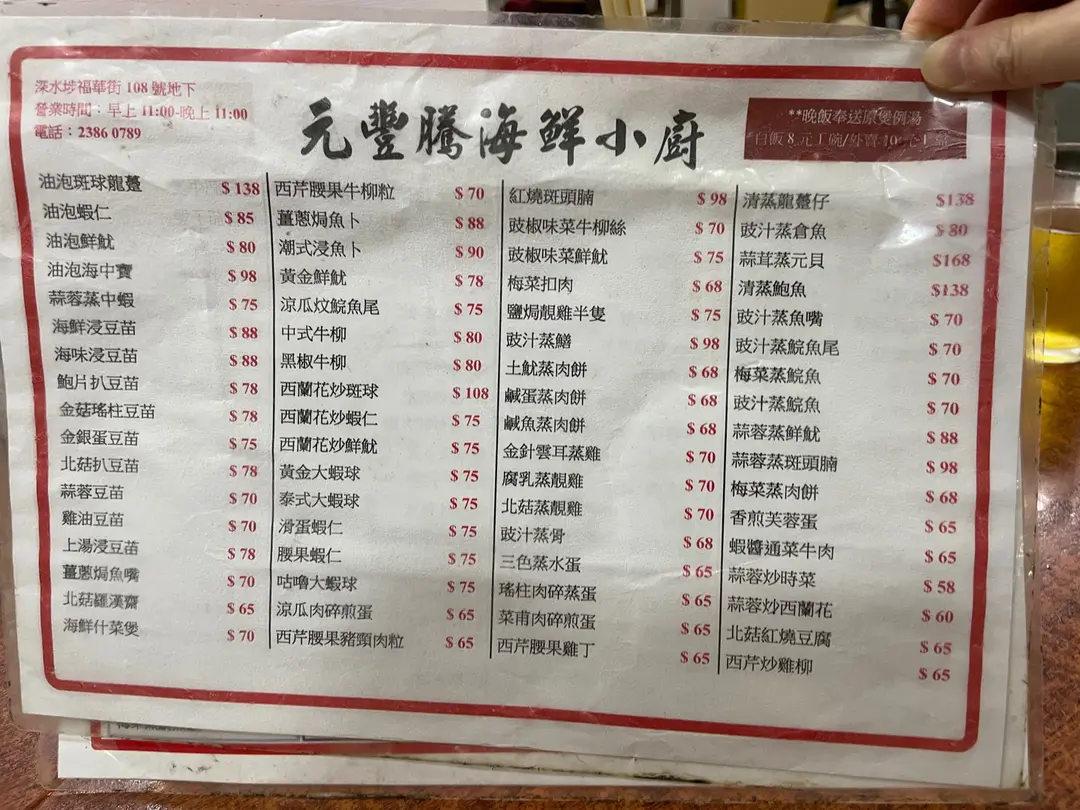 深水埗福華街 108 號地下
營業時間：早上 11:00-晚上 11:00
電話：2386 0789
元豐騰海鮮小廚
**晚飯奉送原煲例湯
白飯 8 元 1 碗/外賣
油泡斑球龍躉 $ 138
油泡蝦仁 $ 85
油泡鮮魷 $ 80
油泡海中寶 $ 98
蒜蓉蒸中蝦 $ 75
海鮮浸豆苗 $ 88
海味浸豆苗 $ 88
鮑片扒豆苗 $ 78
金菇瑤柱豆苗 $ 78
金銀蛋豆苗 $ 75
北菇扒豆苗 $ 78
蒜蓉豆苗 $ 70
雞油豆苗 $ 70
上湯浸豆苗 $ 78
薑蔥焗魚嘴 $ 70
北菇羅漢齋 $ 65
海鮮什菜煲 $ 70
西芹腰果牛柳粒 $ 70
薑蔥焗魚卜 $ 88
潮式浸魚卜 $ 90
黃金鮮魷 $ 78
涼瓜炆鯇魚尾 $ 75
中式牛柳 $ 80
黑椒牛柳 $ 80
西蘭花炒斑球 $ 108
西蘭花炒蝦仁 $ 75
西蘭花炒鮮魷 $ 75
黃金大蝦球 $ 75
泰式大蝦球 $ 75
滑蛋蝦仁 $ 75
腰果蝦仁 $ 75
咕嚕大蝦球 $ 75
涼瓜肉碎煎蛋 $ 65
西芹腰果豬頸肉粒 $ 65
紅燒斑頭腩 $ 98
豉椒味菜牛柳絲 $ 70
豉椒味菜鮮魷 $ 75
梅菜扣肉 $ 68
鹽焗靚雞半隻 $ 75
豉汁蒸鱔 $ 98
土魷蒸肉餅 $ 68
鹹蛋蒸肉餅 $ 68
鹹魚蒸肉餅 $ 68
金針雲耳蒸雞 $ 70
腐乳蒸靚雞 $ 70
北菇蒸靚雞 $ 70
豉汁蒸骨 $ 68
三色蒸水蛋 $ 65
瑤柱肉碎蒸蛋 $ 65
菜甫肉碎煎蛋 $ 65
西芹腰果雞丁 $ 65
清蒸龍躉仔 $138
豉汁蒸倉魚 $ 80
蒜茸蒸元貝 $168
清蒸鮑魚 $138
豉汁蒸魚嘴 $ 70
豉汁蒸鯇魚尾 $ 70
梅菜蒸鯇魚 $ 70
豉汁蒸鯇魚 $ 70
蒜蓉蒸鮮魷 $ 88
蒜蓉蒸斑頭腩 $ 98
梅菜蒸肉餅 $ 68
香煎芙蓉蛋 $ 65
蝦醬通菜牛肉 $ 65
蒜蓉炒時菜 $ 58
蒜蓉炒西蘭花 $ 60
北菇紅燒豆腐 $ 65
西芹炒雞柳 $ 65